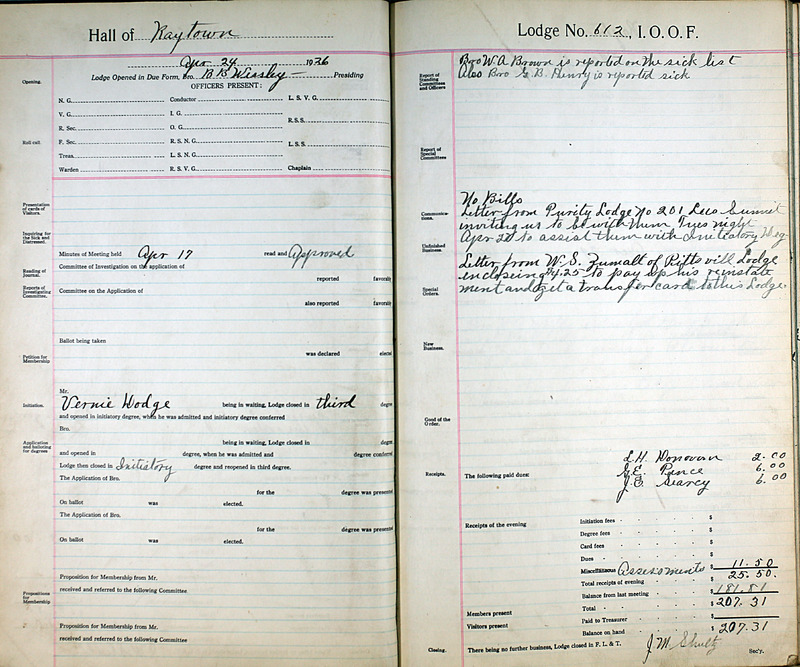 Hall of Raytown
Apr 24 1926
Opening.
Lodge Opened in Due Form, Bro. B B Wissley Presiding
OFFICERS PRESENT:
N. G. Conductor L. S. V. G.
V. G. I. G. R.S.S.
R. Sec. O. G.
Roll call.
F. Sec. R. S. N. G. L. S. S.
Treas. L. S. N. G.
Warden R. S. V. G. Chaplain
Presentation of cards of Visitors.
Inquiring for the Sick and Distressed.
Minutes of Meeting held Apr 17 read and Approved
Reading of Journal.
Committee of Investigation on the application of
reported favorab
Reports of Investigating Committee.
Committee on the Application of
also reported favorably
Ballot being taken
was declared elected
Petition for Membership
Mr.
Initiation.
Vernie Dodge being in waiting, Lodge closed in third degree
and opened in initiatory degree, when he was admitted and initiatory degree conferred
Bro.
Application and balloting for degrees
being in waiting, Lodge closed in degree
and opened in degree, when he was admitted and degree conferred
Lodge then closed in Initiatory degree and reopened in third degree.
The Application of Bro.
for the degree was presented
On ballot was elected.
The Application of Bro.
for the degree was presented
On ballot was elected.
Proposition for Membership from Mr.
received and referred to the following Committee
Propositions for Membership
Proposition for Membership from Mr.
received and referred to the following Committee
Lodge No. 612, I. O. O. F.
Report of Standing Committees and Officers
Bro W. A Brown is reported on the sick list
Also Bro G. B. Henry is reported sick
Report of Special Committees
No Bills
Communications.
Letter from Purity Lodge No 201 Lees Summit
inviting us to be with them Tues night
Apr 28 to assist them with Initiatory Deg
Unfinished Business.
Letter from W. S. Zumalt of Pitts vill Lodge
enclosing $4.25 to pay up his reinstate
Special Orders.
ment and get a transfer card to this Lodge.
New Business.
Good of the Order.
L. H. Donovan 2.00
Receipts. The following paid dues: G. E. Pence 6.00
J. E. Searcy 6.00
Receipts of the evening
Initiation fees $
Degree fees $
Card fees $
Dues $
Miscellaneous Assessments $ 11.50
Total receipts of evening $ 25.50.
Balance from last meeting $ 181.81
Total $ 207.31
Members present
Paid to Treasurer $
Visitors present
Balance on hand $ 207.31
Closing. There being no further business, Lodge closed in F. L. & T. J. M. Shultz Sec'y.